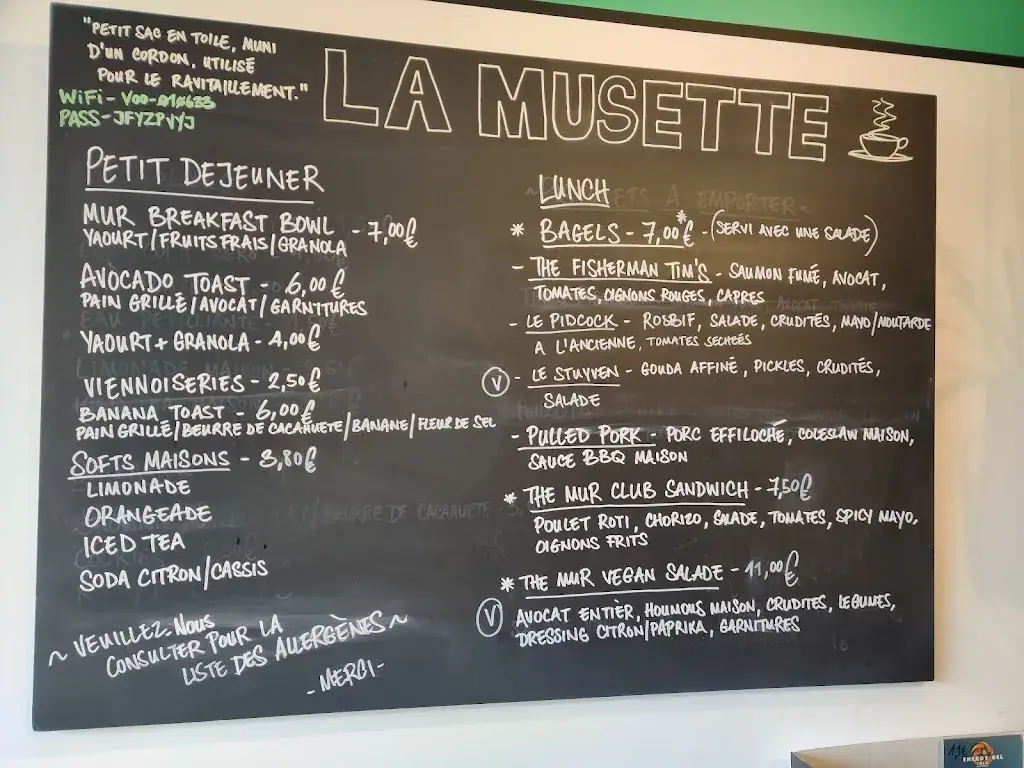 "PETIT SAC EN TOILE, MUNI
D'UN CORDON, UTILISÉ
POUR LE RAVITAILLEMENT."
WiFi - VOO-010683
PASS - JFYZPVYJ
LA MUSETTE
PETIT DEJEUNER
MUR BREAKFAST BOWL - 7,00€
YAOURT/FRUITS FRAIS/GRANOLA
AVOCADO TOAST - 6,00€
PAIN GRILLÉ/AVOCAT/GARNITURES
YAOURT + GRANOLA - 4,00€
VIENNOISERIES - 2,50€
BANANA TOAST - 6,00€
PAIN GRILLÉ/BEURRE DE CACAHUETE/BANANE/FLEUR DE SEL
SOFTS MAISONS - 3,80€
LIMONADE
ORANGEADE
ICED TEA
SODA CITRON/CASSIS
~ VEUILLEZ NOUS
CONSULTER POUR LA
LISTE DES ALLERGÈNES ~
- MERCI -
LUNCH
* BAGELS - 7,00€* - (SERVI AVEC UNE SALADE)
- THE FISHERMAN TIM'S - SAUMON FUMÉ, AVOCAT,
TOMATES, OIGNONS ROUGES, CAPRES
- LE PIDCOCK - ROSBIF, SALADE, CRUDITÉS, MAYO/MOUTARDE
A L'ANCIENNE, TOMATES SECHEES
V - LE STUYVEN - GOUDA AFFINÉ, PICKLES, CRUDITÉS,
SALADE
- PULLED PORK - PORC EFFILOCHÉ, COLESLAW MAISON,
SAUCE BBQ MAISON
* THE MUR CLUB SANDWICH - 7,50€
POULET ROTI, CHORIZO, SALADE, TOMATES, SPICY MAYO,
OIGNONS FRITS
* THE MUR VEGAN SALADE - 11,00€
V AVOCAT ENTIER, HOUMOUS MAISON, CRUDITES, LEGUMES,
DRESSING CITRON/PAPRIKA, GARNITURES
ENERGY GEL